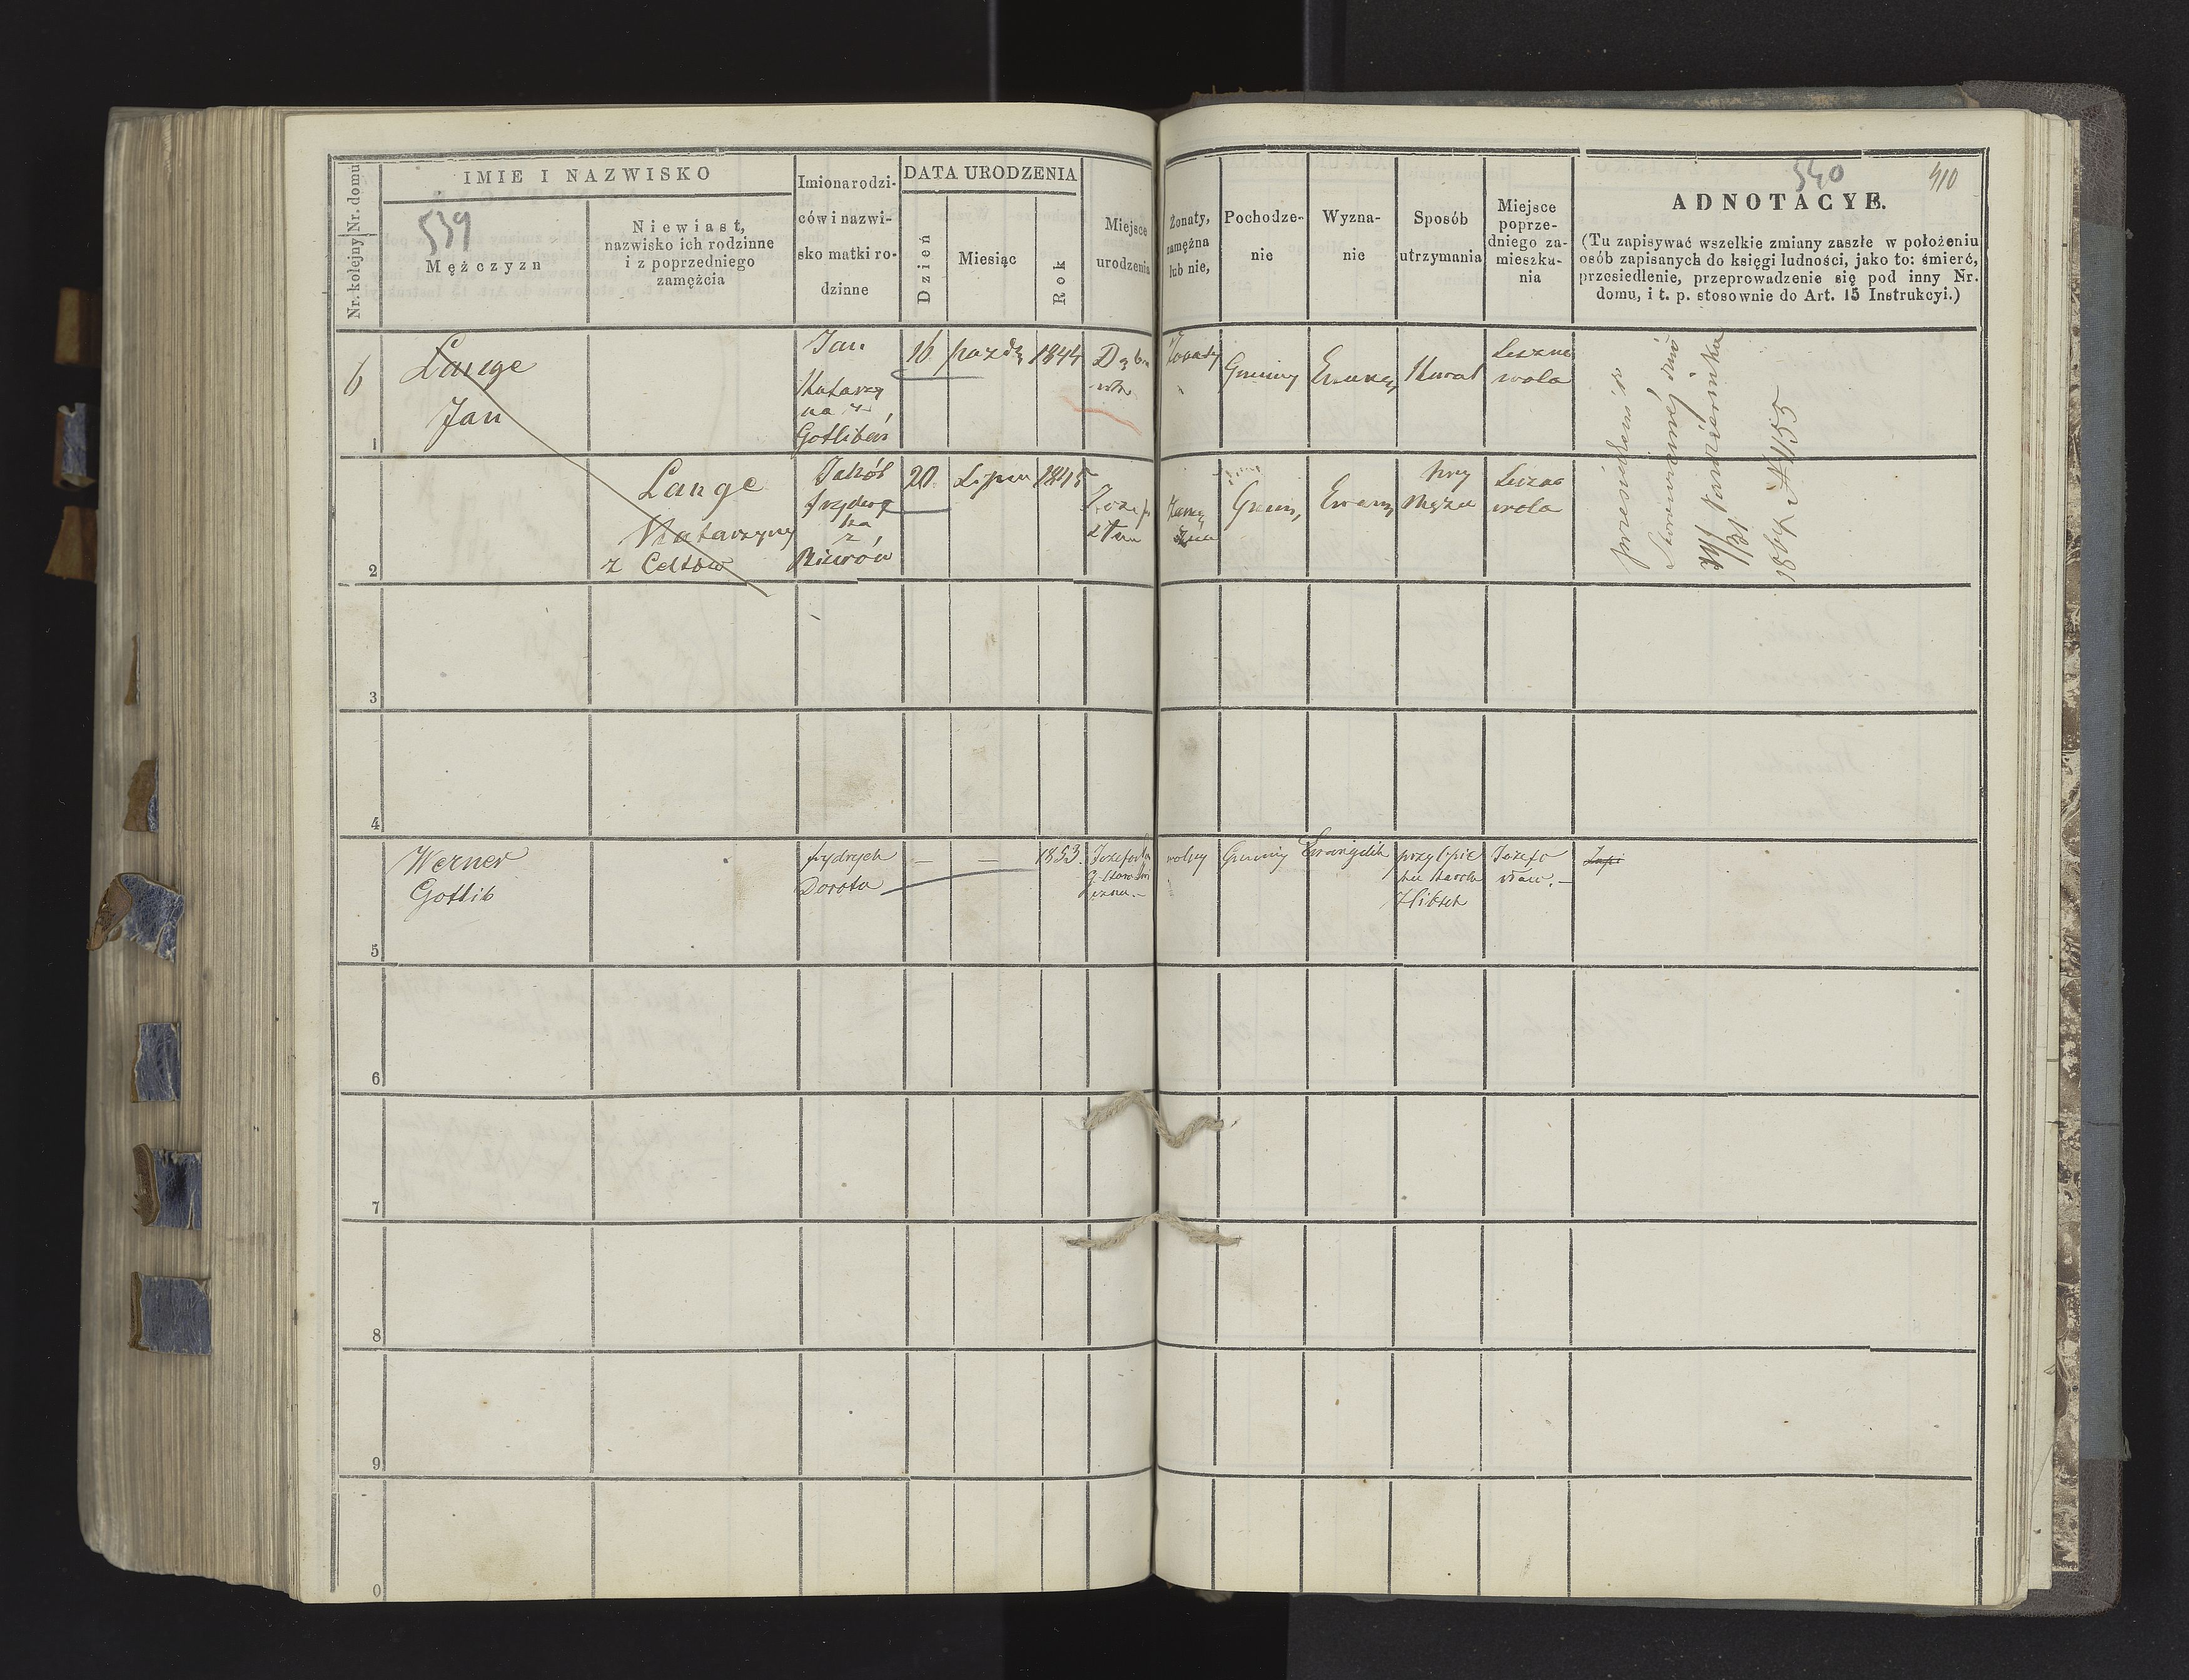 Nr. domu
Nr. kolejny
IMIE I NAZWISKO
539
Mężczyzn
Niewiast,
nazwisko ich rodzinne
i z poprzedniego
zamężcia
Imiona rodzi-
ców i nazwi-
sko matki ro-
dzinne
DATA URODZENIA
Dzień
Miesiąc
Rok
Miejsce
urodzenia
Żonaty,
zamężna
lub nie,
Pochodze-
nie
Wyzna-
nie
Sposób
utrzymania
Miejsce
poprze-
dniego za-
mieszka-
nia
540
410
ADNOTACYE.
(Tu zapisywać wszelkie zmiany zaszłe w położeniu
osób zapisanych do księgi ludności, jako to: śmierć,
przesiedlenie, przeprowadzenie się pod inny Nr.
domu, i t. p. stosownie do Art. 15 Instrukcyi.)
6
1
Lange
Jan
Jan
Katarzy
na z
Gotlibów
16
paźdz
1844
Żonaty
Gminny
Ewang
Leszno
wola
2
Lange
Katarzyny
z Celtów
Jakób
frydery
ka
z
20
Lipca
1845
Gmin,
Ewang
przy
Mężu
Leszno
wola
3
4
5
Werner
Gotlib
frydrych
Dorota
— —
1853.
wolny
Gminny
Ewangelik
Józefo
sław. —
Zapi
6
7
8
9
0